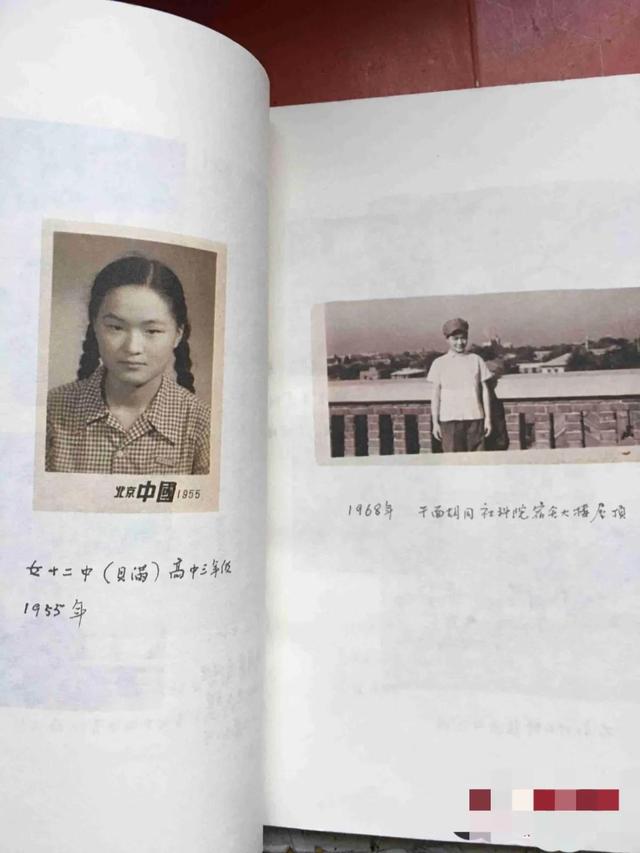 北京中國1955
女十二中（贝满）高中三年级
1955年
1968年 干面胡同 社科院宿舍大楼屋顶